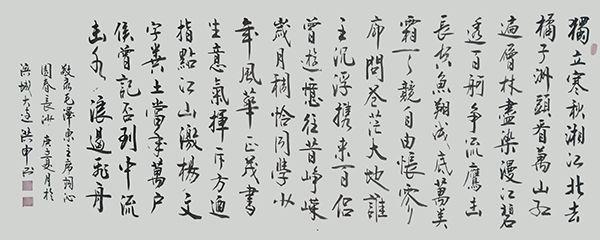 獨立寒秋湘江北去
橘子洲頭看萬山紅
遍層林盡染漫江碧
透百舸争流鷹击
長空魚翔浅底萬类
霜天競自由悵寥
廓問苍茫大地誰
主沉浮携来百侣
曾遊憶往昔峥嵘
歲月稠恰同學少
年風華正茂書
生意氣揮斥方遒
指點江山激揚文
字糞土當年萬户
侯曾記否到中流
击水浪遏飛舟
敬录毛澤東主席詞沁
園春長沙 庚寅夏月於
滨城大連洪中